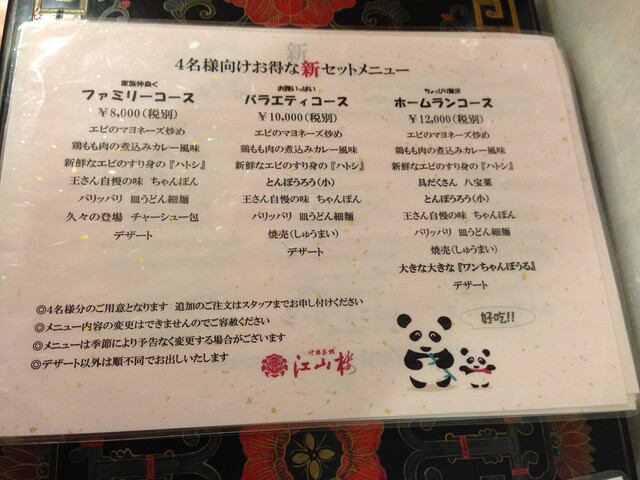 4名様向けお得な新セットメニュー
家族仲良く
ファミリーコース
￥8,000(税別)
エビのマヨネーズ炒め
鶏もも肉の煮込みカレー風味
新鮮なエビのすり身の『ハトシ』
王さん自慢の味 ちゃんぽん
パリッパリ 皿うどん細麺
久々の登場 チャーシュー包
デザート
お腹いっぱい
バラエティコース
￥10,000(税別)
エビのマヨネーズ炒め
鶏もも肉の煮込みカレー風味
新鮮なエビのすり身の『ハトシ』
とんぽうろう(小)
王さん自慢の味 ちゃんぽん
パリッパリ 皿うどん細麺
焼売(しゅうまい)
デザート
ちょっぴり贅沢
ホームランコース
￥12,000(税別)
エビのマヨネーズ炒め
鶏もも肉の煮込みカレー風味
新鮮なエビのすり身の『ハトシ』
具だくさん 八宝菜
とんぽうろう(小)
王さん自慢の味 ちゃんぽん
パリッパリ 皿うどん細麺
焼売(しゅうまい)
大きな大きな『ワンちゃんぼうる』
デザート
◎4名様分のご用意となります 追加のご注文はスタッフまでお申し付けください
◎メニュー内容の変更はできませんのでご容赦ください
◎メニューは季節により予告なく変更する場合がございます
◎デザート以外は順不同でお出しいたします
中国菜館
江山楼
好吃!!